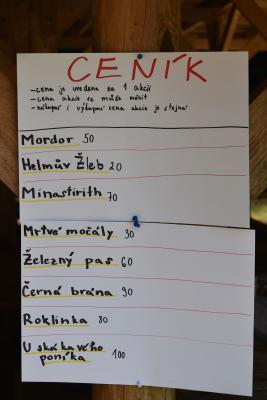 CENÍK
-cena je uvedena za 1 akcii
-cena akcie se může měnit
-nákupní i výkupní cena akcie je stejná
Mordor 50
Helmův Žleb 20
Minastirith 70
Mrtvé močály 30
Železný pas 60
Černá brána 90
Roklinka 80
U skákavého
poníka 100